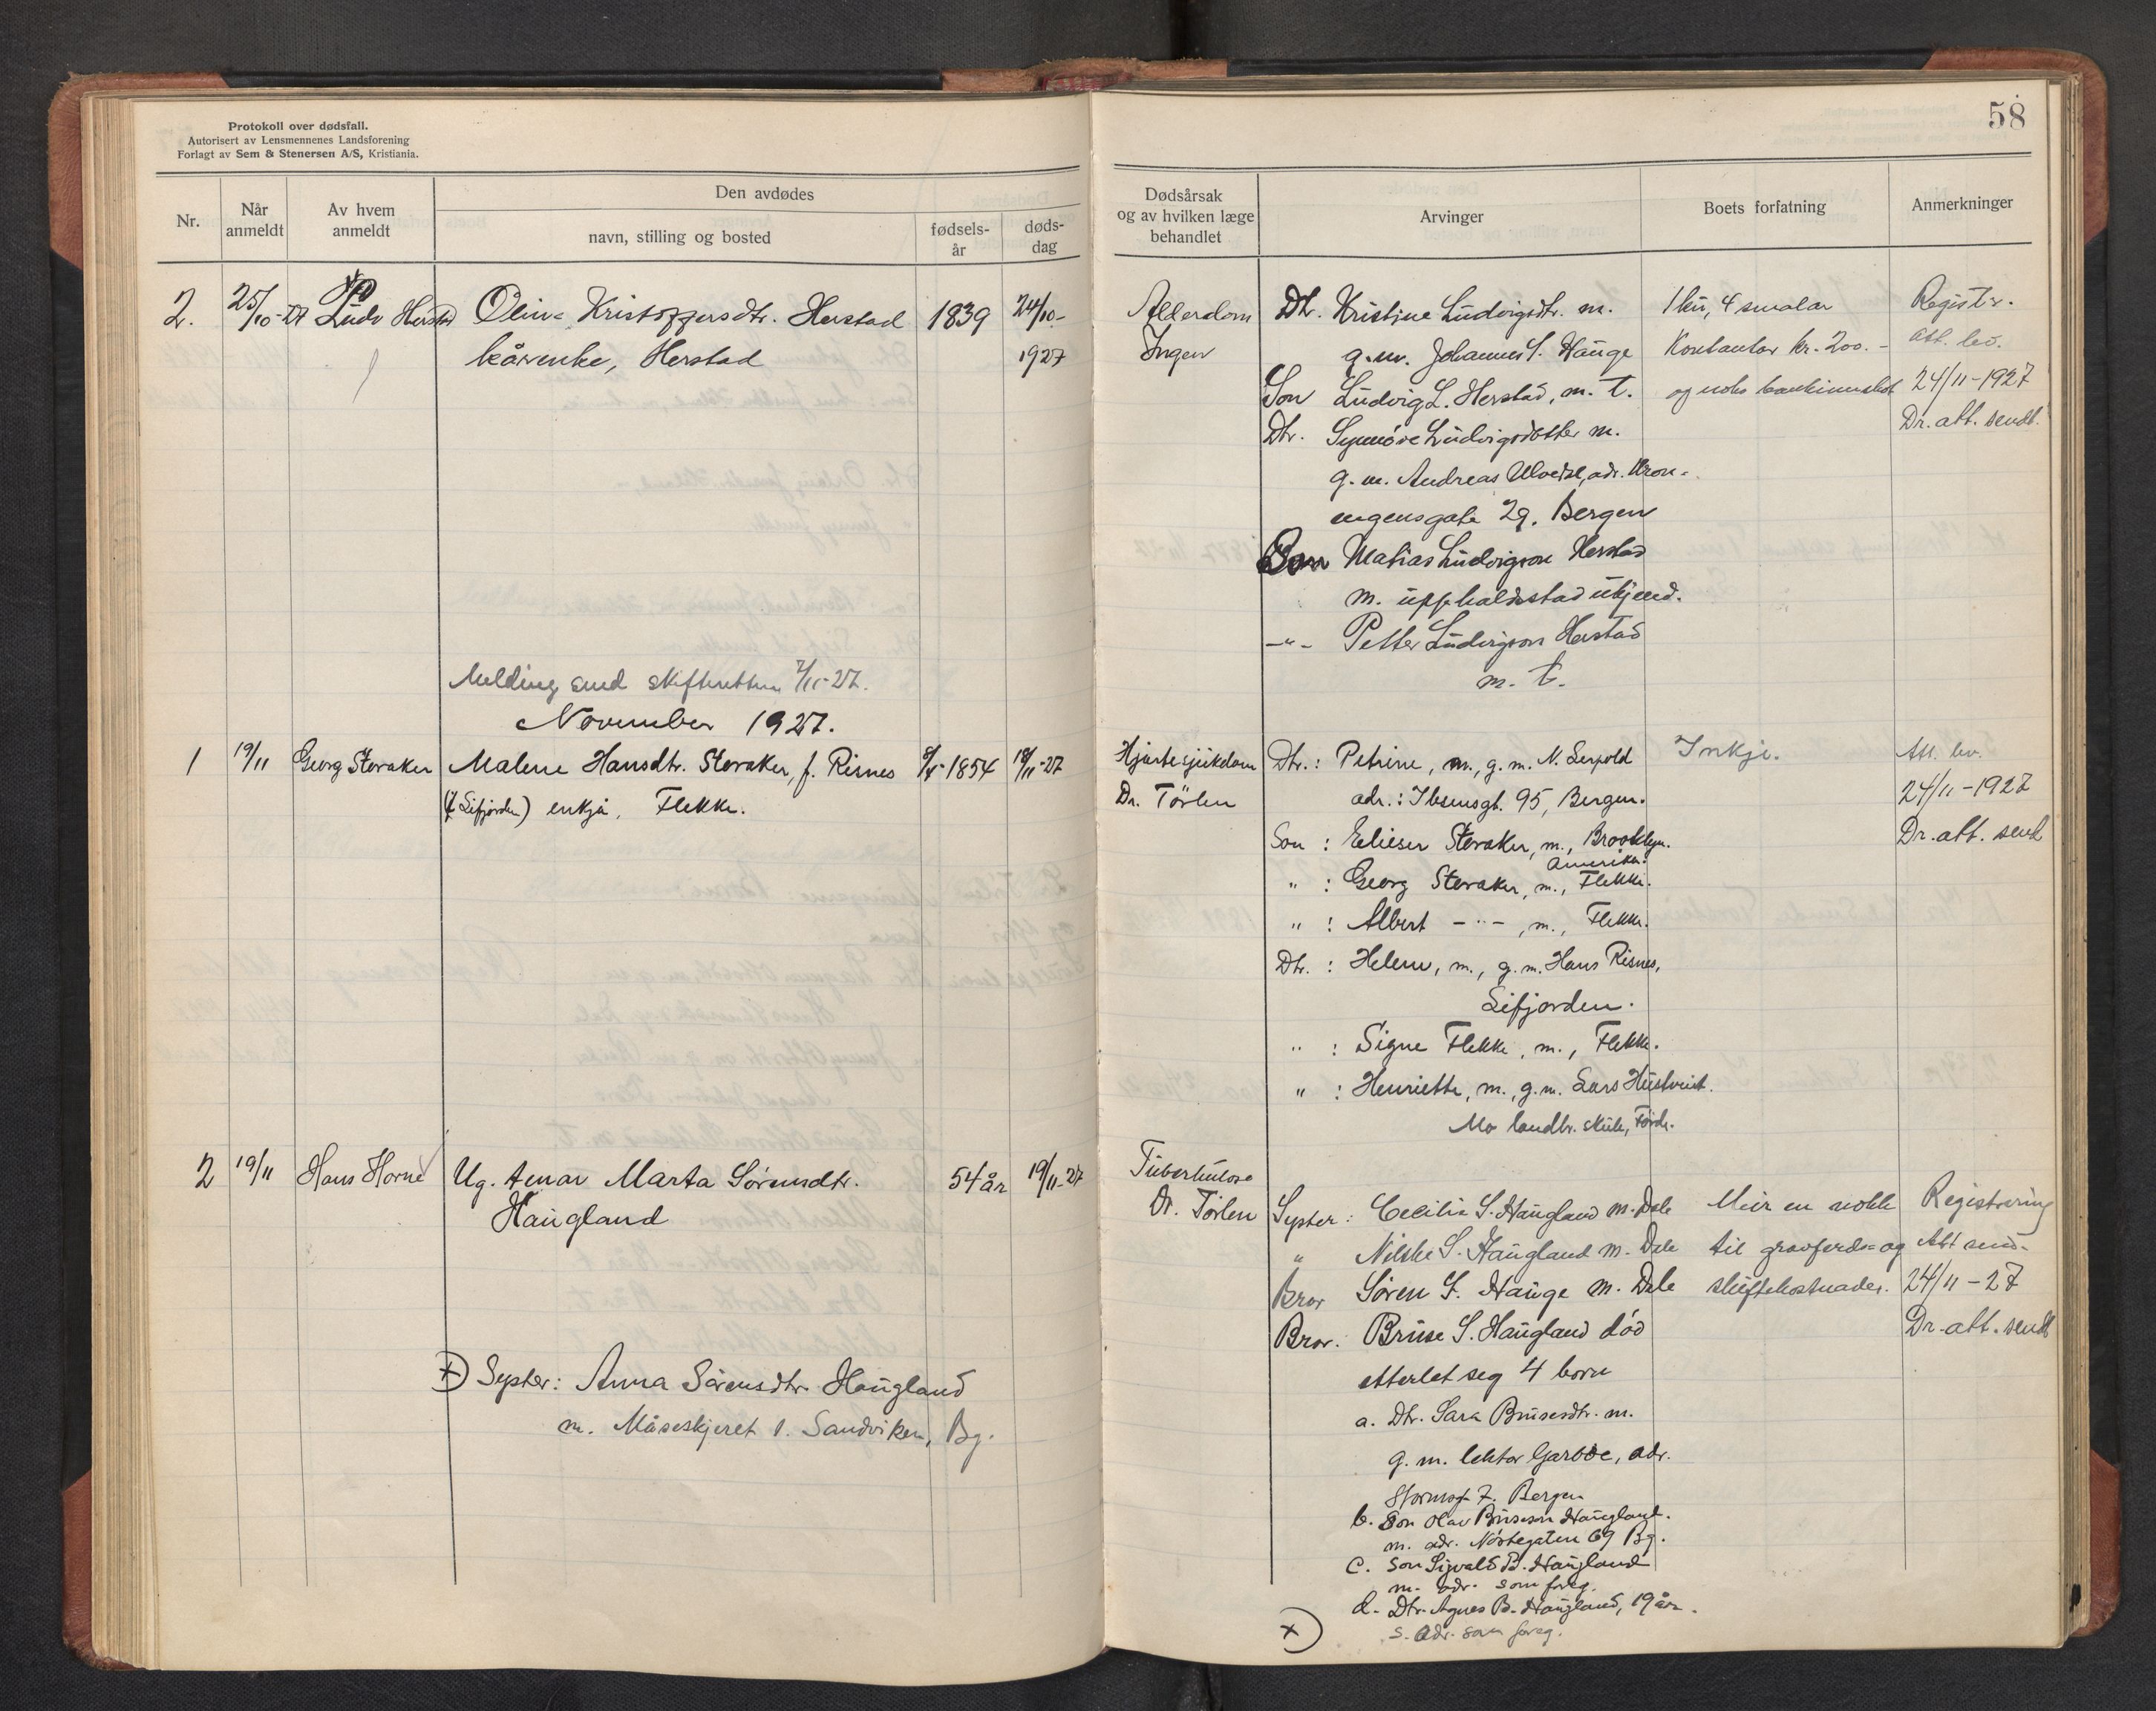 Protokoll over dødsfall.
Autorisert av Lensmennenes Landsforening
Forlagt av Sem & Stenersen A/S, Kristiania.
Nr.
Når anmeldt
Av hvem anmeldt
Den avdødes
navn, stilling og bosted
fødsels-år
døds-dag
2. 25/10-27 Ludv Herstad Oline Kristoffersdtr. Herstad 1839 24/10-
kårenke, Herstad 1927
Melding send skifteretten 7/11-27.
November 1927.
1 19/11 Georg Storaker Malene Hansdtr. Storaker, f. Risnes 8/8-1854 18/11-27
(f. Lifjorden) enkja, Flekke.
2 19/11 Hans Horne Ug. tenar Marta Sørensdtr. 54 år 19/11-27
Haugland
x) Syster: Anna Sørensdtr. Haugland
m. Måseskjeret 1. Sandviken, Bg.
58
Dødsårsak
og av hvilken læge
behandlet
Arvinger
Boets forfatning
Anmerkninger
Alderdom Dtr. Kristine Ludvigsdtr. m. 1 ku, 4 smalar Registr.
Ingen g.m. Johannes S. Hauge Kontantar kr. 200.- att. lev.
Son Ludvig L. Herstad, m. t. og noko bankinnskot 24/11-1927
Dtr. Synnøve Ludvigsdotter m. Dr. att. sendt.
g. m. Andreas Ulvedal, adr. Kron-
engensgate 29. Bergen
Son Matias Ludvigson Herstad
m. upphaldsstad ukjend.
-"- Petter Ludvigson Herstad
m. t.
Hjartesjukdom Dtr.: Petrine, m, g. m. N. Leupold Inkje. Att. lev.
Dr. Törlen adr.: Ibsensgt. 95, Bergen. 24/11-1927
Son : Elieser Storaker, m., Brooklyn. Dr. att. send
Amerika.
" : Georg Storaker, m., Flekke.
" : Albert -"-, m., Flekke.
Dtr. : Helene, m., g. m. Hans Risnes,
Lifjorden.
" : Signe Flekke, m., Flekke.
" : Henriette, m., g. m. Lars Hustveit.
Mo landbr. skule, Förde.
Tuberkulose
Dr. Törlen Syster : Cecilia S. Haugland m. Dale Meir en nokk Registrering
" Nilske S. Haugland m. Dale til gravferds- og Att send.
Bror Søren S. Hauge m. Dale skiftekostnader. 24/11-27
Bror. Bruse S. Haugland död Dr. att. sendt
etterlet seg 4 born
a. Dtr. Sara Brusesdtr. m.
g. m. lektor Garboe, adr.
Stormsgt 7. Bergen
b. Son Olav Bruseson Haugland.
m. adr. Nöstegaten 69 Bg.
c. Son Sigvald B. Haugland
m. adr. som foreg.
d. Dtr. Agnes B. Haugland, 19 år.
s. adr. som foreg.
x)